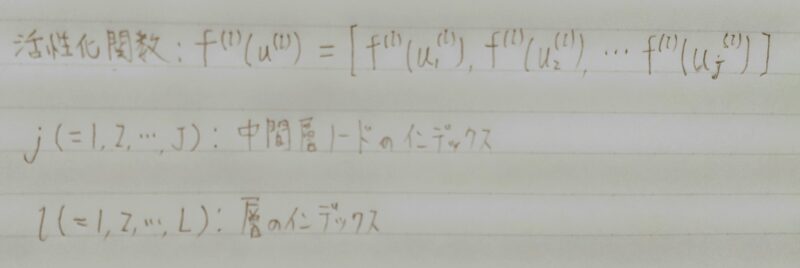 活性化関数：f⁽ˡ⁾(u⁽ˡ⁾) = [f⁽ˡ⁾(u₁⁽ˡ⁾), f⁽ˡ⁾(u₂⁽ˡ⁾), … f⁽ˡ⁾(uⱼ⁽ˡ⁾)]
j(=1,2,…,J)：中間層ノードのインデックス
l(=1,2,…,L)：層のインデックス